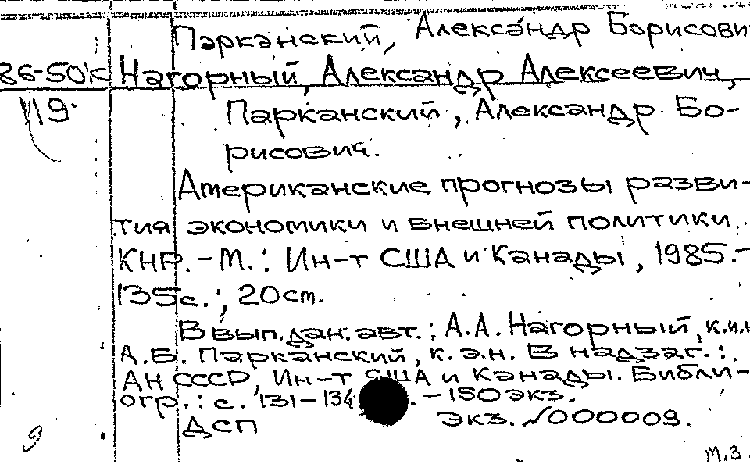 Парканский, Александр Борисови
86-50К Нагорный, Александр Алексеевич,
119 Парканский, Александр Бо-
рисович.
Американские прогнозы разви-
тия экономики и внешней политики
КНР. - М.: Ин-т США и Канады, 1985.-
135с.; 20 ст.
В вып. дан. авт.: А.А. Нагорный, к.и.н
А.Б. Парканский, к.э.н. В надзаг.:
АН СССР, Ин-т США и Канады. Библи-
огр.: с. 131-134 . - 150 экз.
ДСП Экз. №000009.
9 м.3